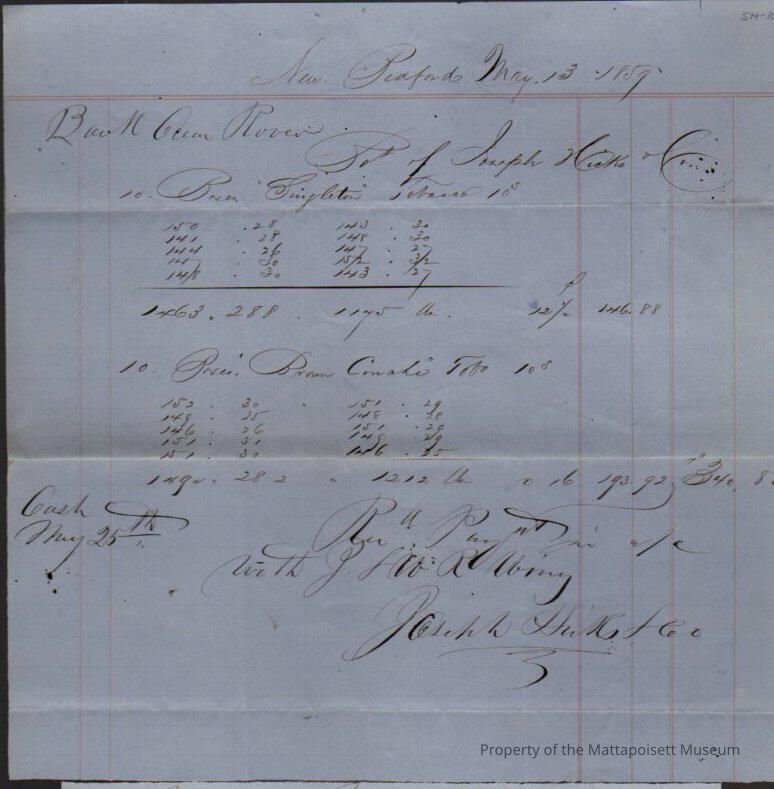 SH-
New Bedford May 13 1859
Bark Ocean Rover
Bot of Joseph Hicks & Co
10 Boxes "Singleton" Tobacco 10s
150 . 28 143 . 30
141 . 29 148 . 30
144 . 26 147 . 27
147 . 30 152 . 32
148 . 30 143 . 27
1463 . 288 . 1175 lb . 12½ 146.88
10 Boxes Tobo 10s
152 . 30 . 151 . 29
149 . 25 148 . 28
146 . 26 151 . 29
151 . 31 149 . 29
151 . 30 146 . 25
1494 . 282 " 1212 lb 16 193.92 $340.8
Cash
May 25th
Recd Paymt in a/c
with J. & W R Wing
Joseph Hicks & Co
Property of the Mattapoisett Museum